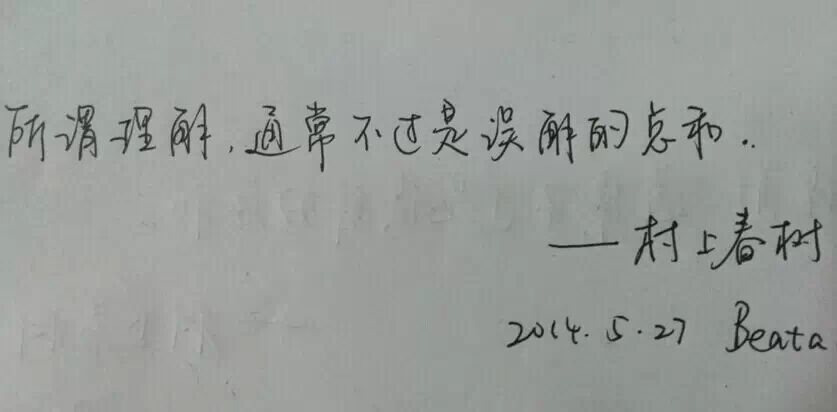 所谓理解，通常不过是误解的总和..
——村上春树
2014.5.27 Beata